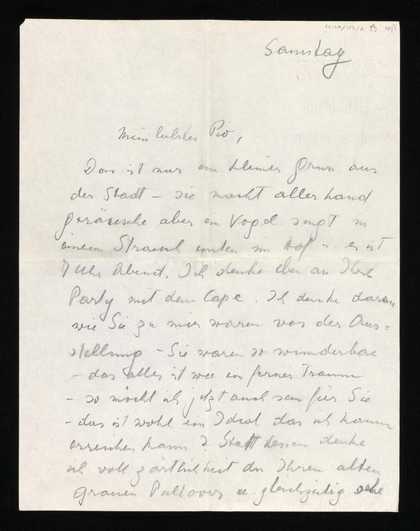 Samstag
Mein liebster Pio,
Das ist nur ein kleiner Gruss aus
der Stadt – sie macht allerhand
geräusche aber ein Vogel singt in
einem Strauch unten im Hof – es ist
7 Uhr Abend. Ich denke eben an Ihre
Party mit dem Cape. Ich denke daran
wie Sie zu mir waren vor der Aus-
stellung – Sie waren so wunderbar
– das alles ist wie ein ferner Traum
– so möcht ich jetzt auch sein für Sie
– das ist wohl ein Ideal das ich kaum
erreichen kann? Statt dessen denke
ich voll Zärtlichkeit an Ihren alten
grauen Pullover u. gleichzeitig sehe